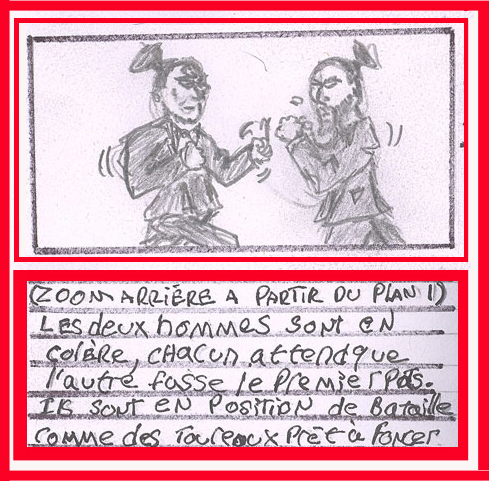 (ZOOM ARRIÈRE A PARTIR DU PLAN 1)
LES deux hommes SONT EN
COLÈRE, CHACUN attend que
l'autre fasse le Premier Pas.
ILS SONT EN POSITION de Bataille
COMME des TAUREAUX PRÊT à FONCER